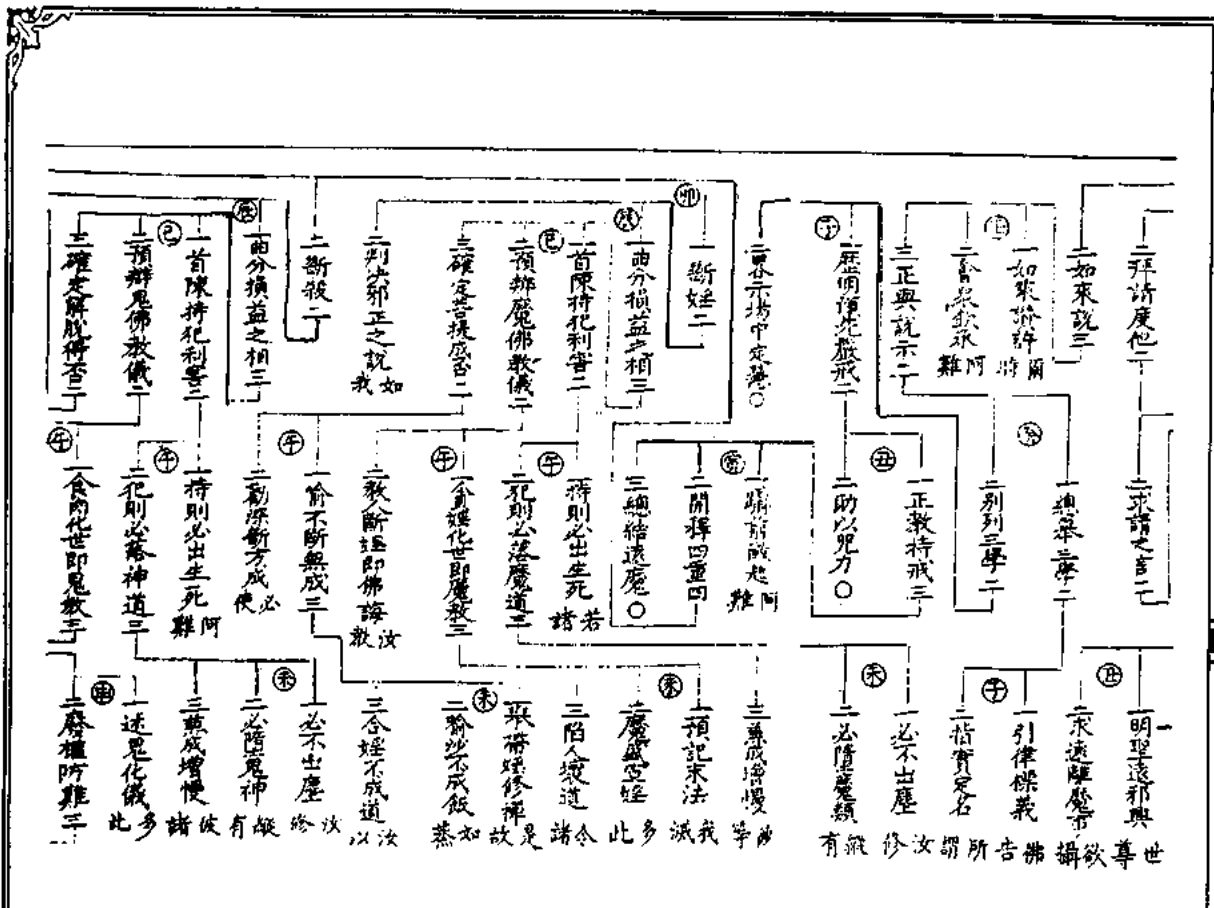 二拜請度他二
二如來說三
壬
一如來諭許 爾時
二會眾欽承 阿難
三正與說示二
子
一歷明預先嚴戒二
二畧示場中定慧○
卯
一斷婬二
辰
一曲分損益之相三
巳
一首陳持犯利害二
二預辯魔佛教儀二
三確定菩提成否二
二判決邪正之說 如我
二斷殺二
辰
一曲分損益之相三
巳
一首陳持犯利害二
二預辯鬼佛教儀二
三確定解脫得否二
二求請之言二
癸
一總舉三學二
二別列三學二
丑
一正教持戒三
二助以咒力○
寅
一躡前徵起 阿難
二開釋四重四
三總結遠魔○
午
一持則必出生死 若諸
二犯則必落魔道三
午
一貪婬化世即魔教三
二教人斷婬即佛誨 汝教
午
一喻不斷無成三
二勸深斷方成 必使
午
一持則必出生死 阿難
二犯則必落神道三
午
一食肉化世即鬼教三
丑
一明聖遠邪興 世尊
二求遠離魔事 欲攝
子
一引律標義 佛告
二指實定名 所謂
未
一必不出塵 汝修
二必墮魔類 縱有
三兼成增慢 彼等
未
一預記末法 我滅
二魔盛宣婬 多此
三陷人壞道 令諸
未
一取帶婬修禪 是故
二喻沙不成飯 如蒸
三合婬不成道 汝以
未
一必不出塵 汝修
二必墮鬼神 縱有
三兼成增慢 彼諸
申
一述鬼化儀 多此
二廢權防難三